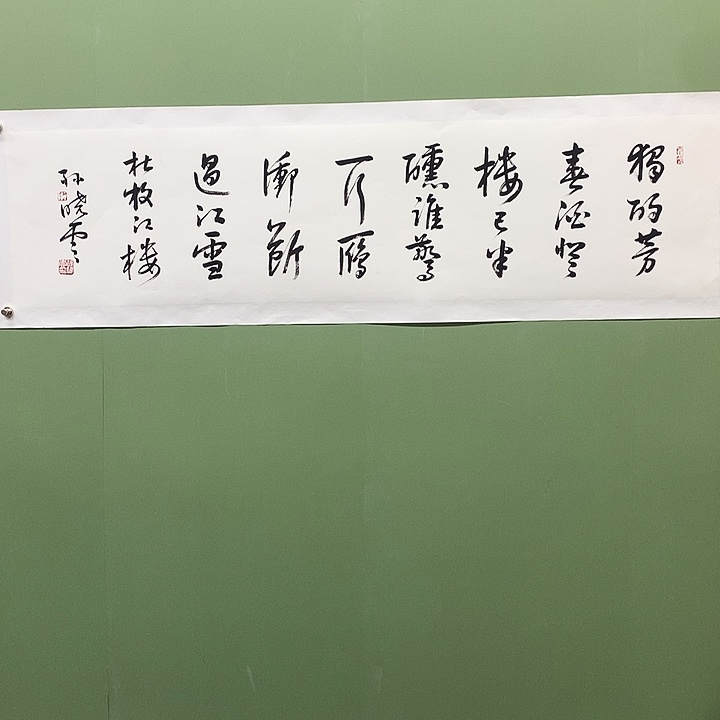 獨酌芳
春酒登
楼已半
醺誰驚
一行鴈
衝斷
過江雲
杜牧江楼
孙晓雲